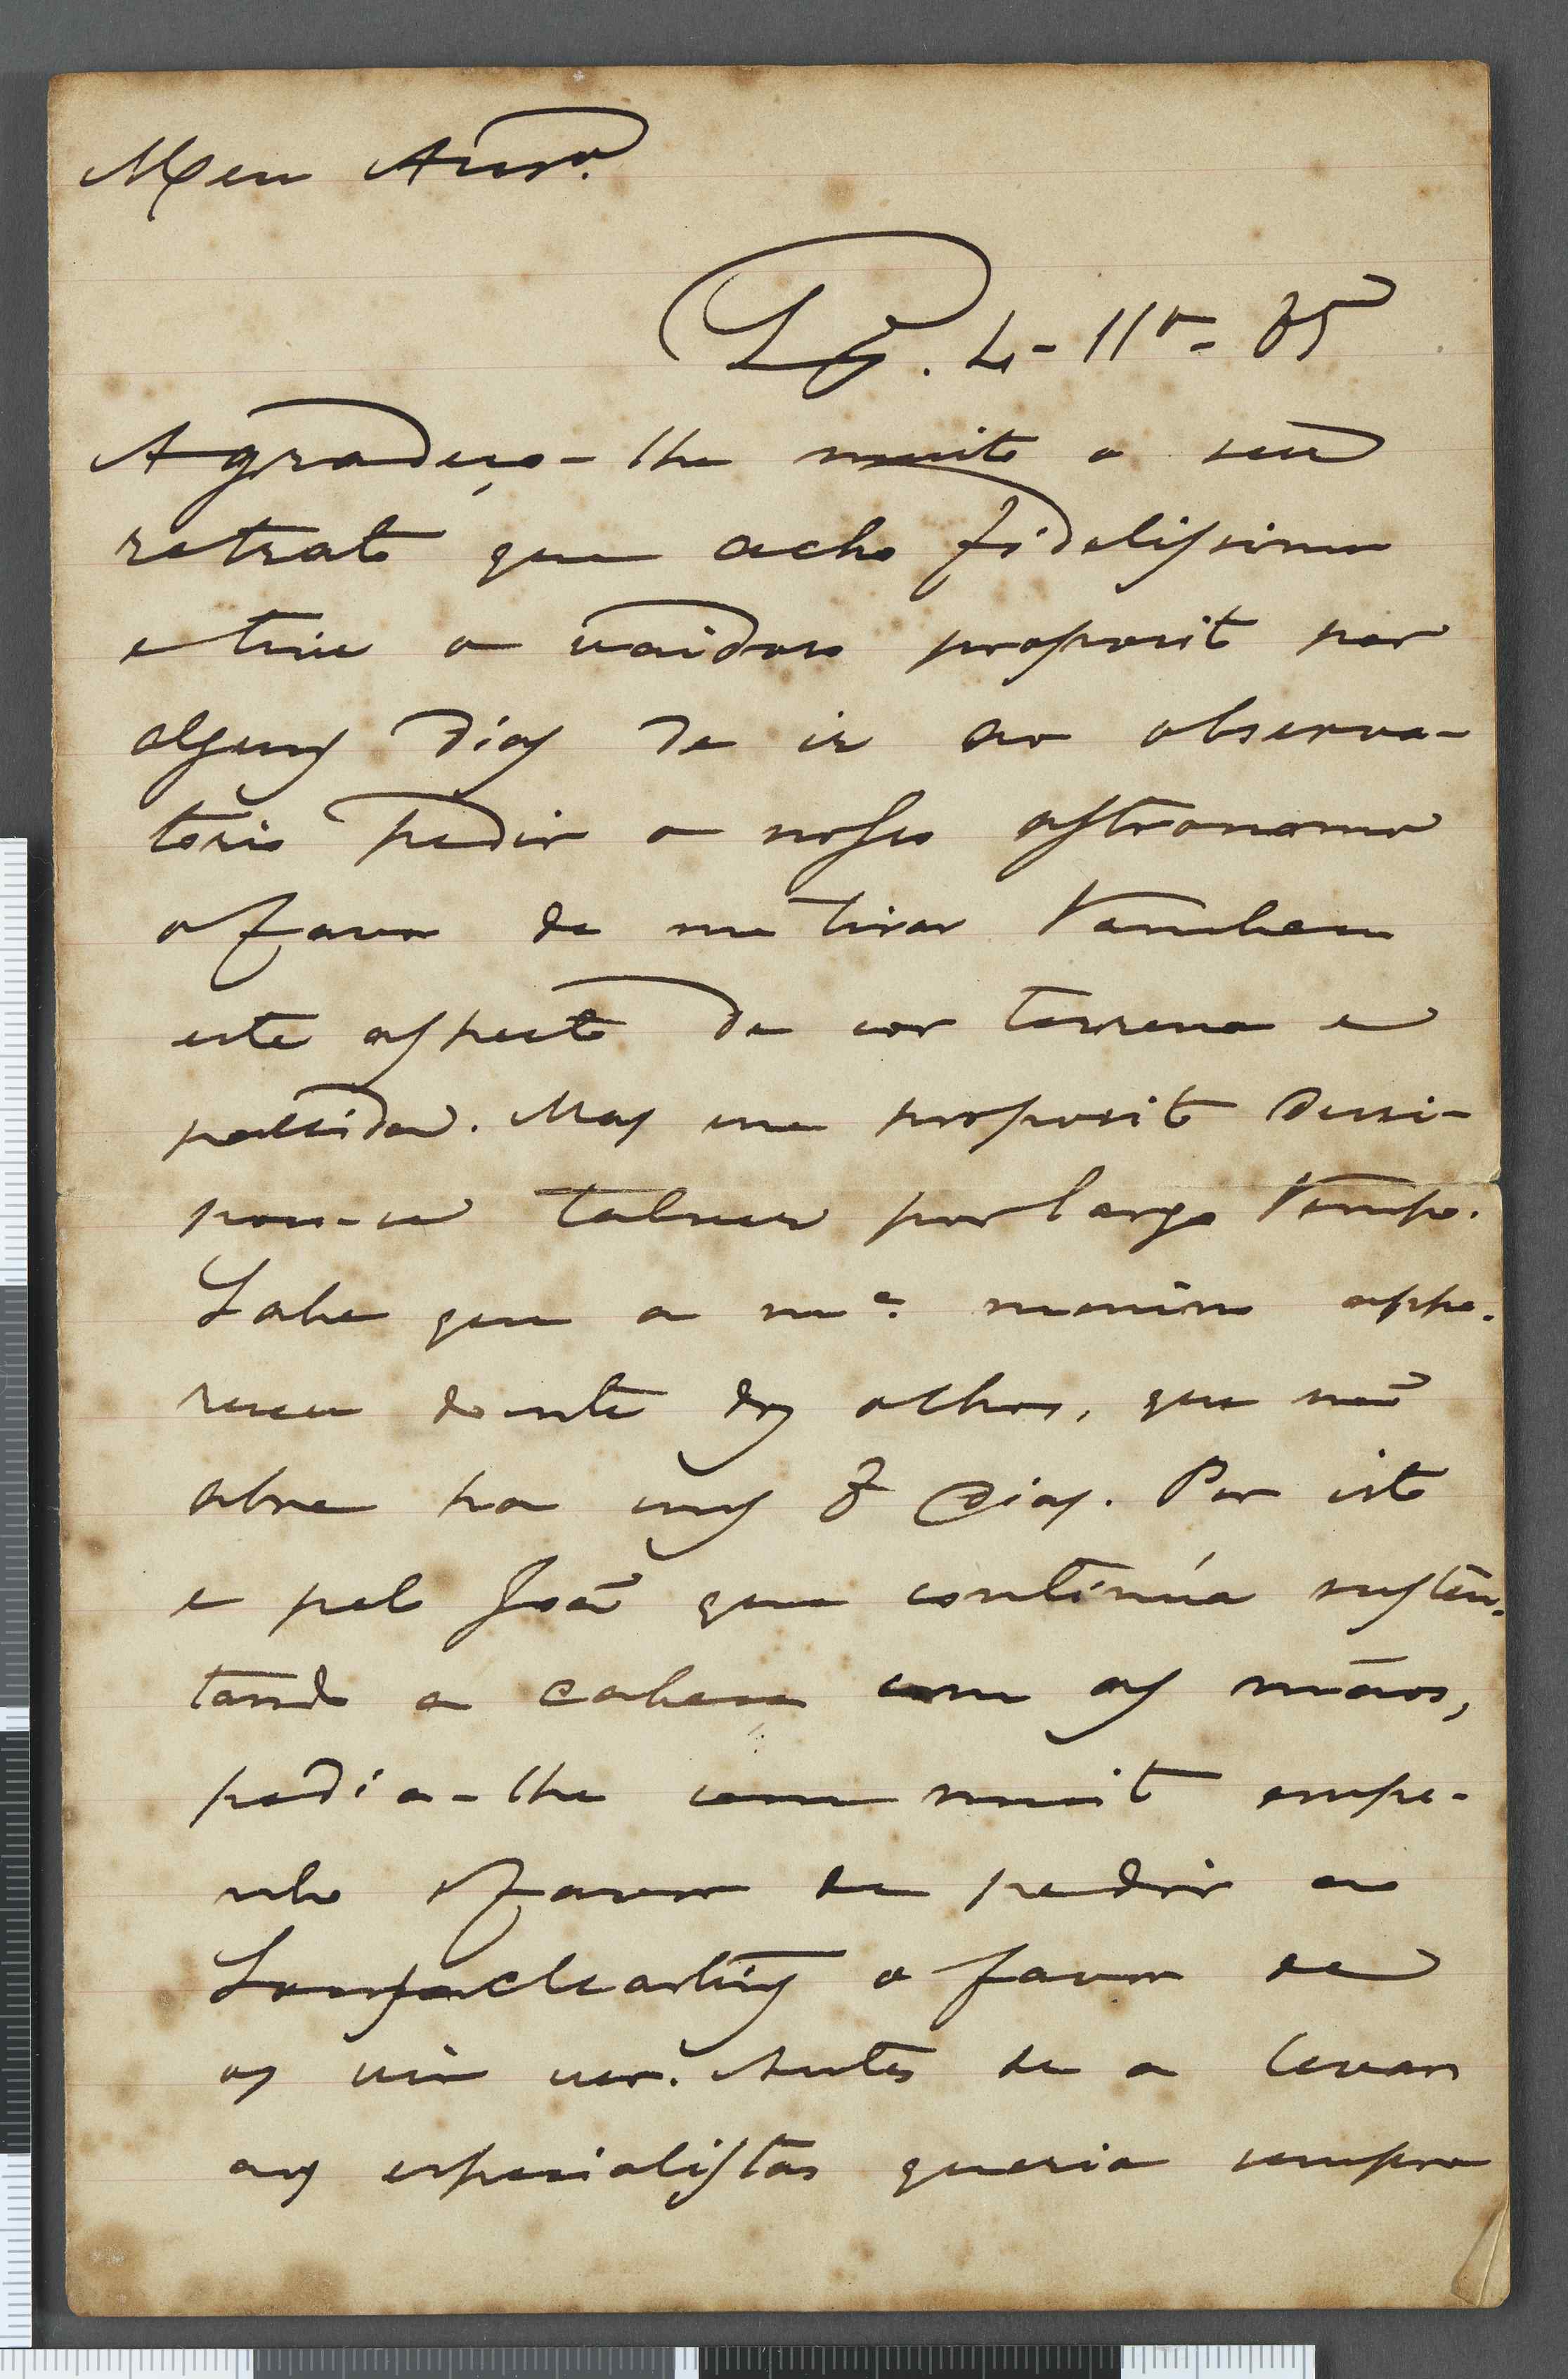 Meu Amº.
Lx. 4-11º-85
Agradeço-lhe muito o seu
retrato que acho fidelissimo
e tive o vaidoso proposito por
alguns dias de ir ao observa-
torio pedir o nosso astronomo
o favor de me tirar tambem
este aspecto de cor terrena e
pallida. Mas esse proposito dissi-
pou-se talvez por largo tempo.
Sabe que a mª. menina appa-
receu doente dos olhos, que não
abre ha uns 8 dias. Por isto
e pelo João que continúa susten-
tando a cabeça com as mãos,
pedia-lhe com muito empe-
nho o favor de pedir ao
Sousa Martins o favor de
os vir ver. Antes de a levar
aos especialistas queria sempre